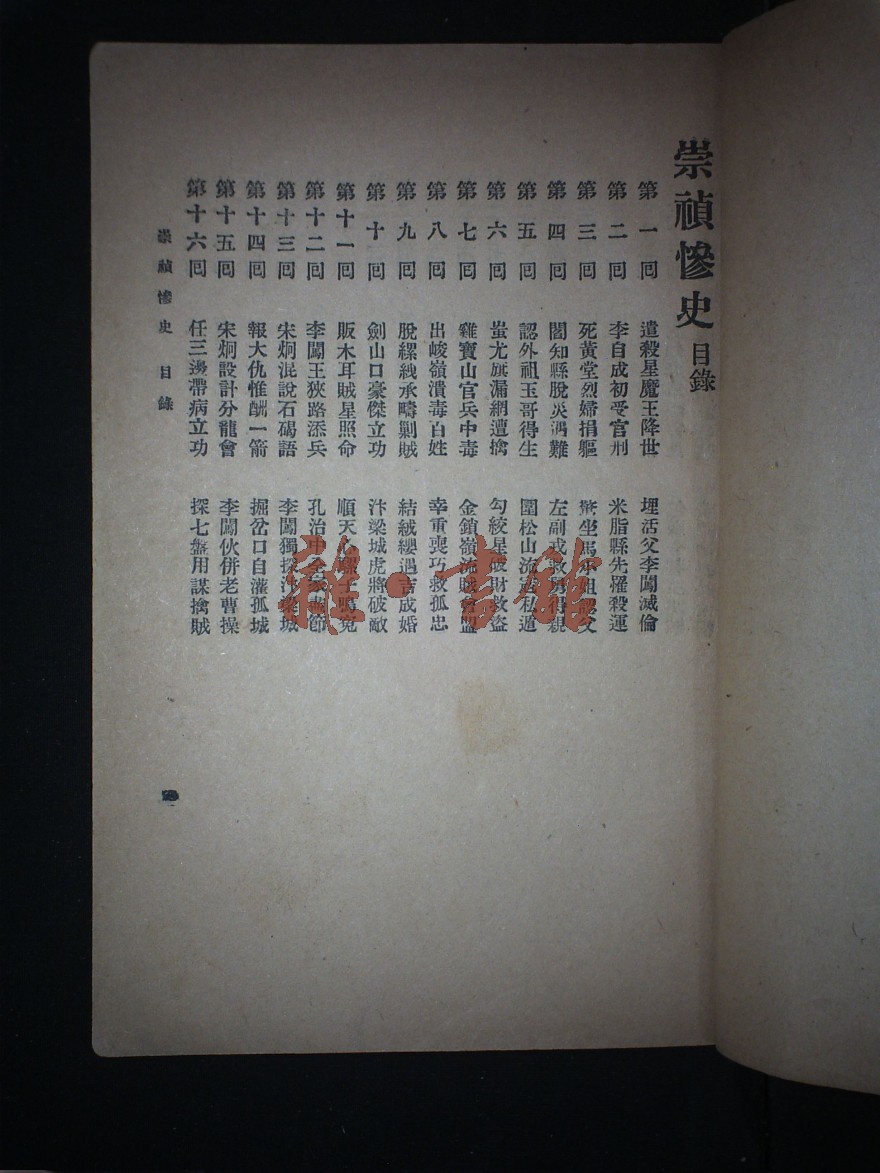 崇禎慘史 目錄
第一回 遣殺星魔王降世 埋活父李闖滅倫
第二回 李自成初受官刑 米脂縣先罹殺運
第三回 死黃堂烈婦捐軀 坐馬 父
第四回 閻知縣脫災遇難 左副戎 得親
第五回 認外祖玉哥得生 圍松山流 私遁
第六回 蚩尤旗漏網遭擒 勾絞星破財救盜
第七回 雞寶山官兵中毒 金鎖嶺流賊會盟
第八回 出峻嶺潰毒百姓 幸重喪巧救孤忠
第九回 脫縲絏承疇剿賊 結絨纓遇吉成婚
第十回 劍山口豪傑立功 汴梁城虎將破敵
第十一回 販木耳賊星照命 順天 鳴冤
第十二回 李闖王狹路添兵 孔治中全家 節
第十三回 宋炯混說石碣語 李闖獨探汴梁城
第十四回 報大仇惟酬一箭 掘岔口自灌孤城
第十五回 宋炯設計分龍會 李闖伙併老曹操
第十六回 任三邊帶病立功 探七盤用謀擒賊
崇禎慘史 目錄
一
雅·書館